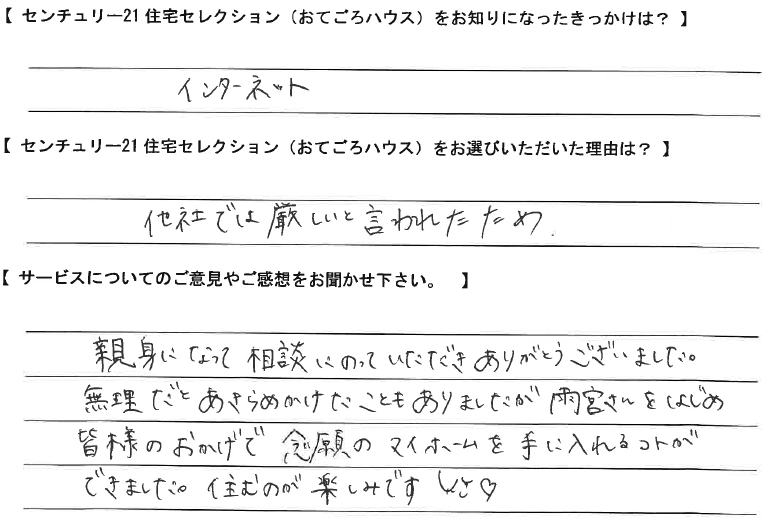 【 センチュリー21 住宅セレクション（おてごろハウス）をお知りになったきっかけは？ 】
インターネット
【 センチュリー21 住宅セレクション（おてごろハウス）をお選びいただいた理由は？ 】
他社では厳しいと言われたため.
【 サービスについてのご意見やご感想をお聞かせ下さい。 】
親身になって相談にのっていただきありがとうございました。
無理だとあきらめかけたこともありましたが雨宮さんをはじめ
皆様のおかげで念願のマイホームを手に入れるコトが
できました。住むのが楽しみです♡